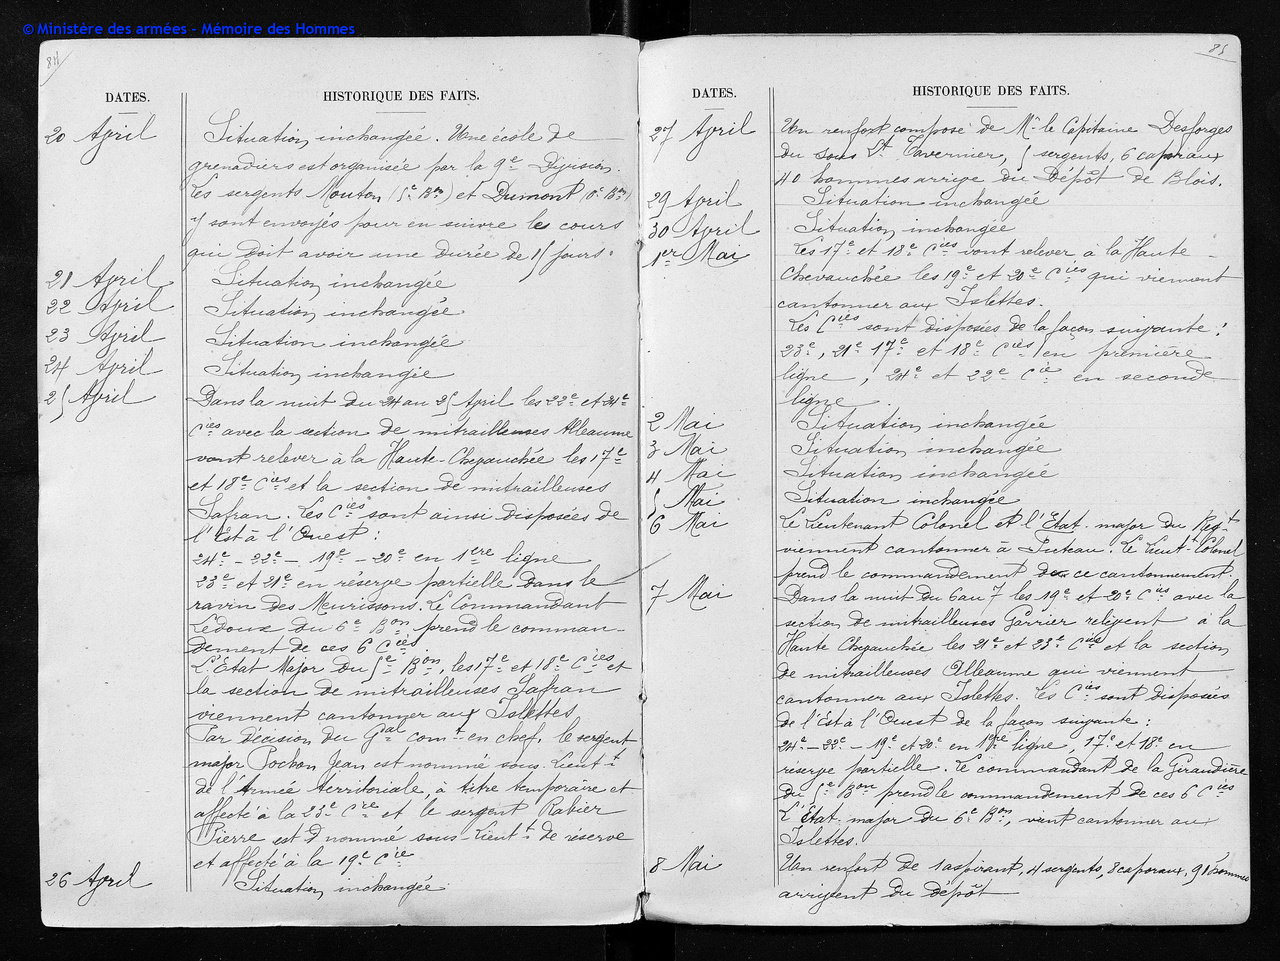 © Ministère des armées - Mémoire des Hommes
84
DATES.
HISTORIQUE DES FAITS.
20 Avril
Situation inchangée. Une école de
grenadiers est organisée par la 9e Division.
Les sergents Mouton (5e Bon) et Dumont (6e Bon)
y sont envoyés pour en suivre les cours
qui doit avoir une durée de 15 jours.
21 Avril
Situation inchangée
22 Avril
Situation inchangée
23 Avril
Situation inchangée
24 Avril
Situation inchangée
25 Avril
Dans la nuit du 24 au 25 Avril les 22e et 24e
Cies avec la section de mitrailleuses Alleaume
vont relever à la Haute-Chevauchée les 17e
et 18e Cies et la section de mitrailleuses
Safran. Les Cies sont ainsi disposées de
l'Est à l'Ouest :
24e - 22e - 19e - 20e en 1ère ligne
23e et 21e en réserve partielle dans le
ravin des Meurissons. Le Commandant
Ledoux du 6e Bon prend le comman-
dement de ces 6 Cies
L'Etat Major du 5e Bon, les 17e et 18e Cies et
la section de mitrailleuses Safran
viennent cantonner aux Islettes
Par décision du Gal comt en chef, le sergent
major Pochon Jean est nommé sous-Lieutt
de l'Armée territoriale, à titre temporaire et
affecté à la 23e Cie et le sergent Rabier
Pierre est nommé sous-Lieutt de réserve
et affecté à la 19e Cie
26 Avril
Situation inchangée
85
DATES.
HISTORIQUE DES FAITS.
27 Avril
Un renfort composé de Mr le Capitaine Desforges
du sous Lt Tavernier, 5 sergents, 6 caporaux
40 hommes arrive du Dépôt de Blois.
29 Avril
Situation inchangée
30 Avril
Situation inchangée
1er Mai
Les 17e et 18e Cies vont relever à la Haute-
Chevauchée les 19e et 20e Cies qui viennent
cantonner aux Islettes.
Les Cies sont disposées de la façon suivante :
23e, 21e 17e et 18e Cies en première
ligne, 24e et 22e Cie en seconde
ligne.
2 Mai
Situation inchangée
3 Mai
Situation inchangée
4 Mai
Situation inchangée
5 Mai
Situation inchangée
6 Mai
Le Lieutenant Colonel et l'Etat-major du Régt
viennent cantonner à . Le Lieut-Colonel
prend le commandement de ce cantonnement.
7 Mai
Dans la nuit du 6 au 7 les 19e et 20e Cies avec la
section de mitrailleuses Garrier relèvent à la
Haute Chevauchée les 21e et 23e Cies et la section
de mitrailleuses Alleaume qui viennent
cantonner aux Islettes. Les Cies sont disposées
de l'Est à l'Ouest de la façon suivante :
24e - 22e - 19e et 20e en 1ère ligne, 17e et 18e en
réserve partielle. Le commandant de la Giraudière
du 5e Bon prend le commandement de ces 6 Cies
L'Etat-major du 6e Bon, vient cantonner aux
Islettes.
8 Mai
Un renfort de 1 aspirant, 4 sergents, 8 caporaux, 91 hommes
arrivent du dépôt